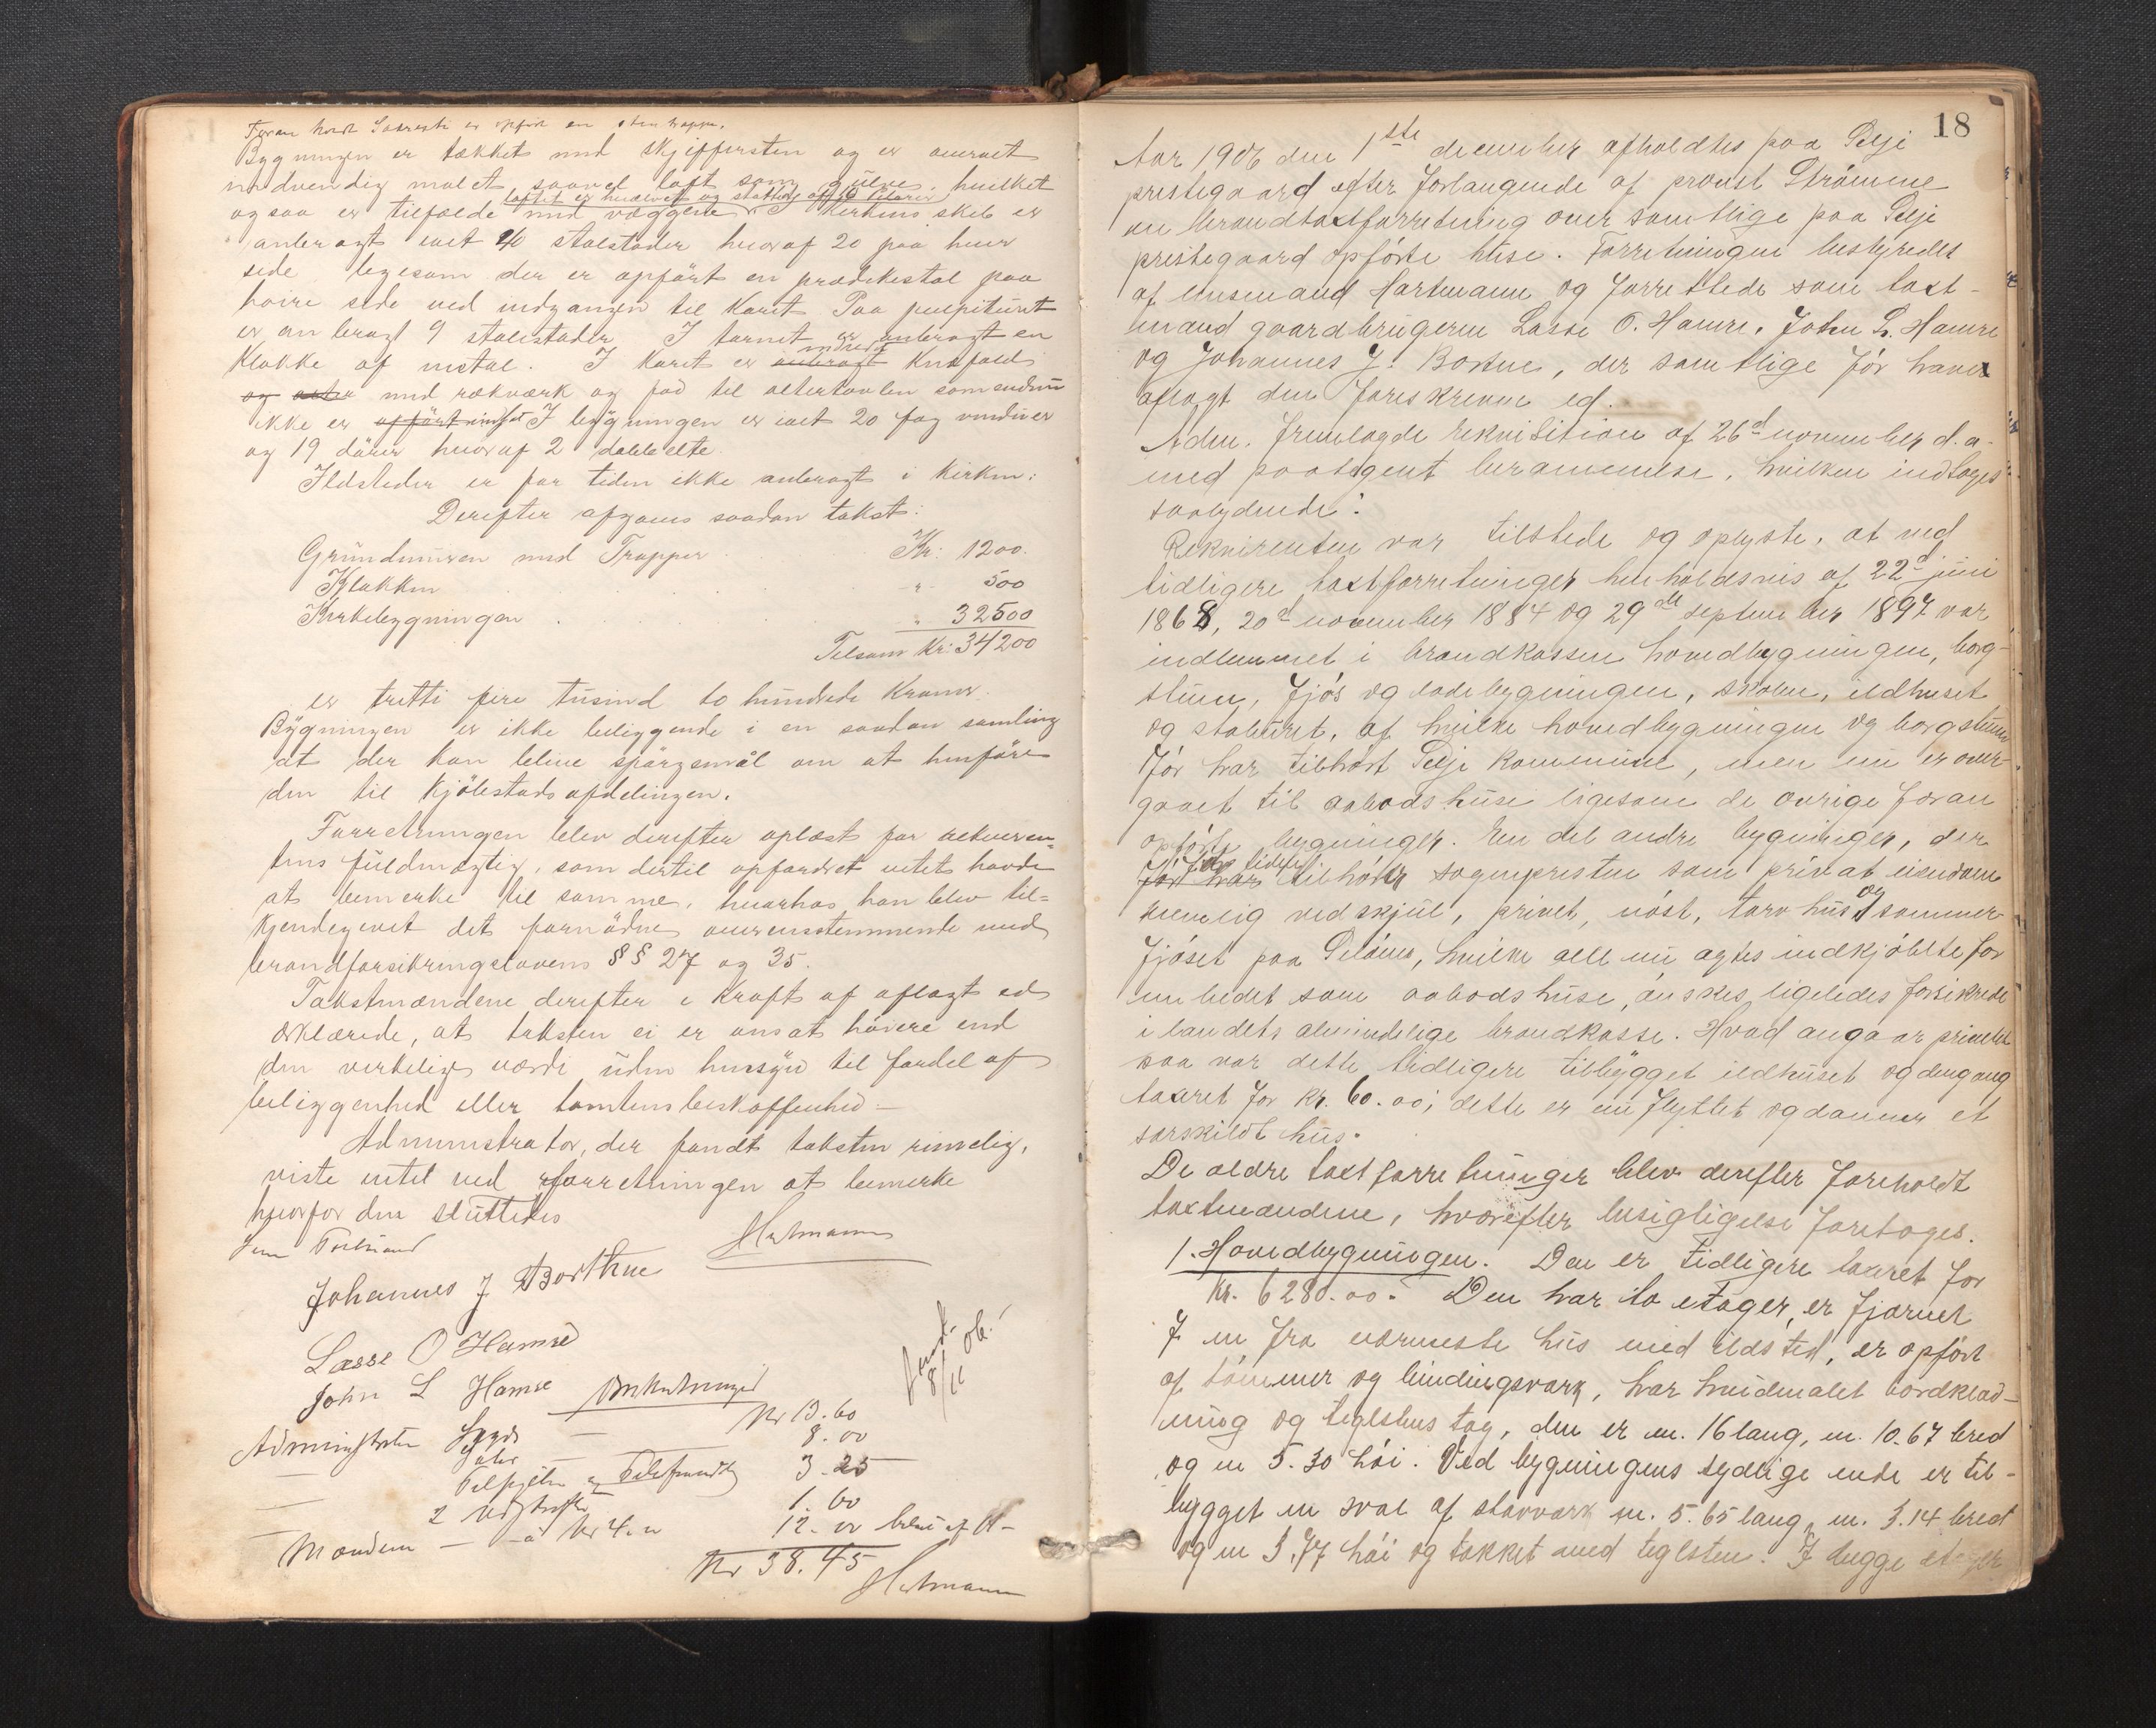 Foran hvert Sakresti er opført en sten trappe.
Bygningen er tækket med skjiffersten og er overalt
indvendig malet saavel loft som gulve, hvilket
loftet er hvælvet og støttes af 10 Pilarer
ogsaa er tilfælde med væggene. I Kirkens skib er
anbragt ialt 40 stolestader hvoraf 20 paa hver
side legesom der er opført en prædikestol paa
høire side ved indgangen til Koret Paa pulpituret
er anbragt 9 stolestader I tarnet er anbragt en
Klokke af metal. I Koret er anbragt indredt Knefald
og alter med rækværk og fod til altertavlen som endnu
ikke er opført indsat I bygningen er ialt 20 fag vinduer
og 19 dører hvoraf 2 dobbelte
Ildsteder er for tiden ikke anbragt i Kirken:
Derefter afgaves saadan takst:
Grundmuren med Trapper Kr: 1200.
Klokken " 500
Kirkebygningen " 32500
Tilsam Kr: 34200
er tretti fire tusind to hundrede Kroner.
Bygningen er ikke beliggende i en saadan samling
at der kan blive spørgsmål om at henføre
den til Kjøbstadsafdelingen.
Forretningen blev derefter oplæst for rekviren-
tens fuldmægtig, som dertil opfordret intet havde
at bemerke til samme, hvorhos han blev til-
kjendegivet det fornødne overensstemmende med
brandforsikringslovens §§ 27 og 35.
Takstmændene derefter i Kraft af aflagt ed
erklærede, at taksten ei er ansat høiere end
den virkelige værdi uden hensyn til fordel af
beliggenhed eller tomtens beskaffenhed –
Administrator, der fandt taksten rimelig,
viste intet ved forretningen at bemerke
hvorfor den sluttedes
Hartmann
Som Taxtmand
Johannes J Borthne
Lasse O Hamre
John L Hamre
Omkostninger
8/11 06.
Administrator Kr 13.60
8.00
3.25
1.60
Mændene – à Kr 4.00 12.00
Kr 38.45
Hartmann
18
Aar 1906 den 1ste december afholdtes paa Selje
prestegaard efter forlangende af provst Strømme
en brandtaxtforretning over samtlige paa Selje
prestegaard opførte huse. Forretningen bestyredes
af lensmand Hartmann og forrettede som taxt-
mænd gaardbrugerne Lasse O. Hamre, John L. Hamre
og Johannes J. Bortne, der samtlige før haver
aflagt den foreskrevne ed.
Adm. fremlagde rekvisition af 26d november d.a.
med paategnet berammelse, hvilken indtages
saalydende:
Rekvirenten var tilstede og oplyste, at ved
tidligere taxtforretninger henholdsvis af 22d juni
1868, 20d november 1884 og 29de september 1897 var
indlemmet i brandkassen hovedbygningen, borg-
stuen, fjøs og ladebygningen, skolen, ildhuset
og staburet, af hvilke hovedbygningen og borgstuen
før har tilhørt Selje kommune, men nu er over-
gaaet til aabodshuse ligesom de øvrige foran
opførte bygninger. En del andre bygninger, der
før har tilhørte sognepresten som privat eiendom
nemlig vedskjul, privet, nøst, torvhus og sommer-
fjøset paa Seløen, hvilke alle nu agtes indkjøbte for
embedet som aabodshuse, ønskes ligeledes forsikrede
i landets almindelige brandkasse. Hvad angaar privetet
saa var dette tidligere tilbygget ildhuset og dengang
taxeret for kr. 60.00; dette er nu flyttet og danner et
særskildt hus.
De ældre taxtforretninger blev derefter foreholdt
taxtmændene, hvorefter besigtigelse foretoges.
1. Hovedbygningen. Den er tidligere taxeret for
Kr. 6280.00. Den har to etager, er fjernet
7 m fra nærmeste hus med ildsted, er opført
af tømmer og bindingsværk, har hvidmalet bordklæd-
ning og teglstens tag, den er m. 16 lang, m. 10.67 bred
og m 5.30 høi. Ved bygningens sydlige ende er til-
bygget en sval af stavværk m. 5.65 lang, m. 3.14 bred
og m 3.77 høi og takket med teglsten. I begge etager